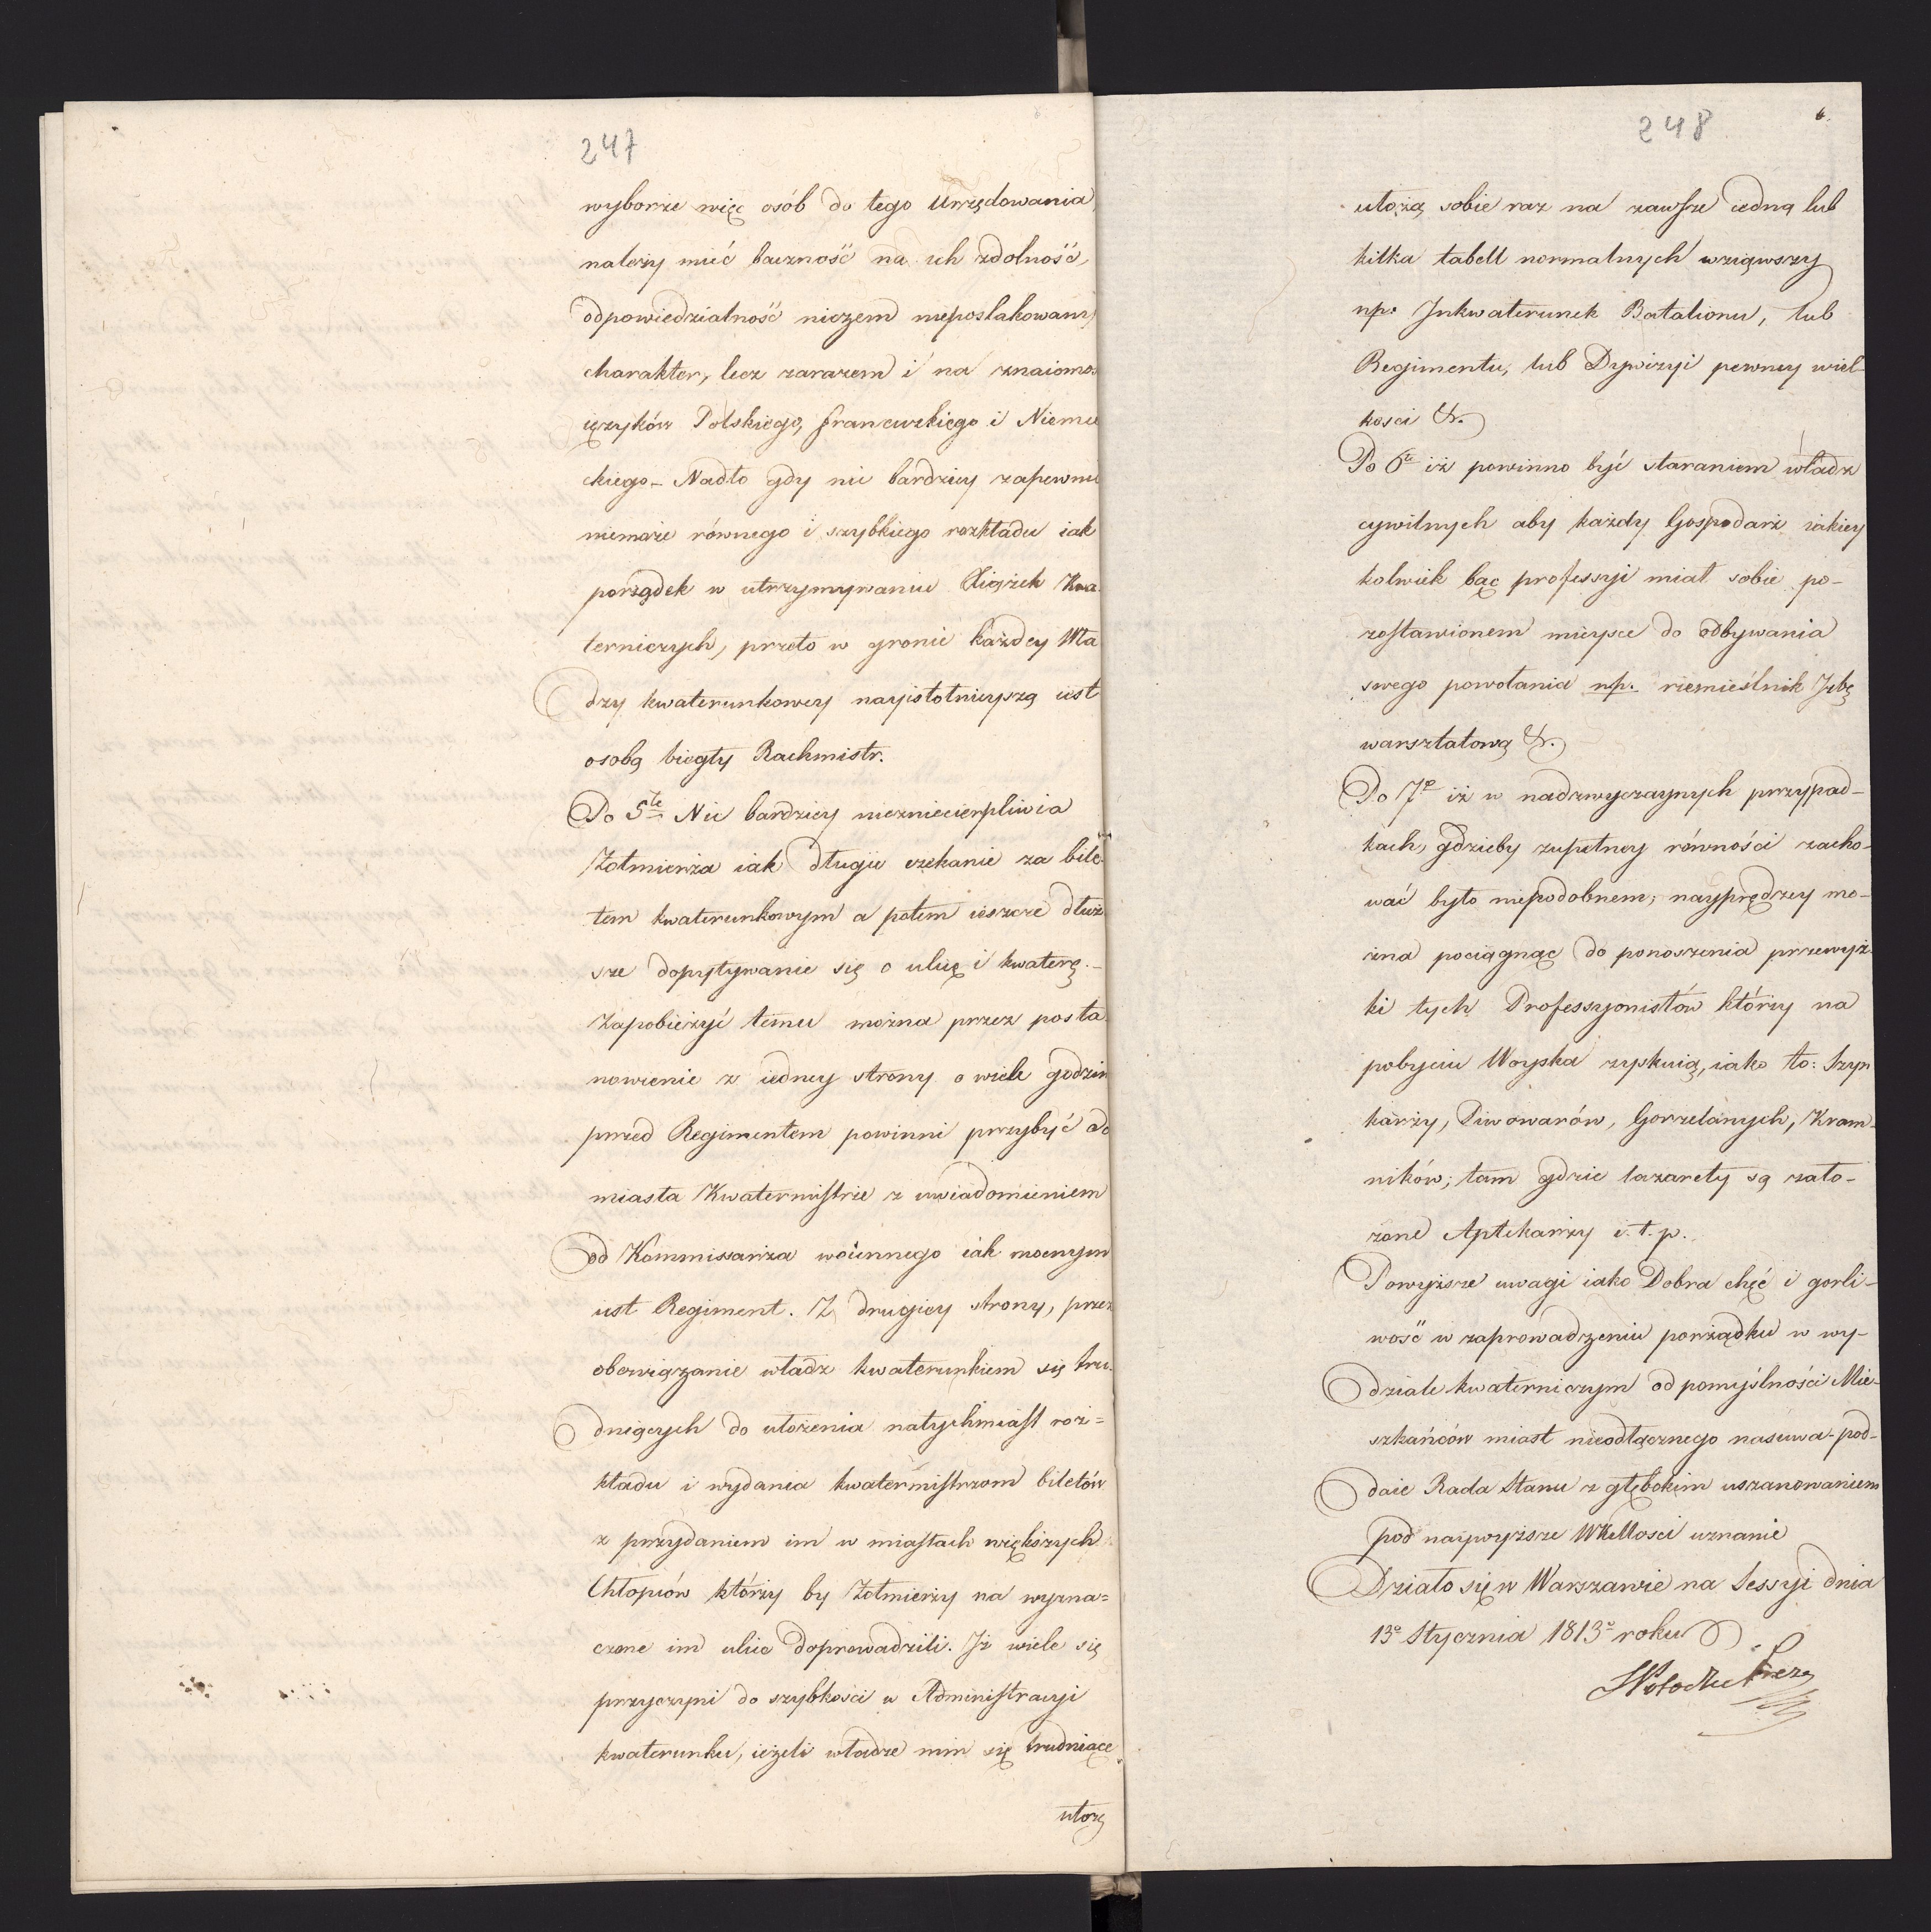 247
wyborze więc osób do tego Urzędowania
należy mieć baczność na ich zdolność,
odpowiedzialność niczem nieposlakowany
charakter, lecz zarazem i na znaiomos
ięzyków Polskiego, francuzkiego i Niemie
ckiego_ Nadto gdy nic bardziey zapewnić
niemoże równego i szybkiego rozkładu iak
porządek w utrzymywaniu Xiążek Kwa-
terniczych, przeto w gronie każdey Wła
dzy kwaterunkowey nayistotnieyszą iest
osobą biegły Rachmistr.
Do 5te Nic bardziey nieznieciérpliwia
Żołnierza iak długie czekanie za bile-
tem kwaterunkowym a potem ieszcze dłuż
sze dopytywanie się o ulicę i kwaterę._
Zapobieżyć temu można przez posta
nowienie z iedney strony o wiele godzin
przed Regimentem powinni przybyć do
miasta Kwatermistrze z uwiadomieniem
od Kommissarza woiennego iak mocnym
iest Regiment. Z drugiey strony, przez
obowiązanie władz kwaterunkiem się tru-
dniących do ułożenia natychmiast roz=
kładu i wydania kwatermistrzom biletów
z przydaniem im w miastach większych
Chłopców którzy by Żołnierzy na wyzna=
czone im ulice doprowadzili. Iż wiele się
przyczyni do szybkosci w Administracyi
kwaterunku, ieżeli władze nim się trudniące
ułożą
248
6.
ułożą sobie raz na zawsze iedną lub
kilka tabell normalnych wziąwszy
np. Inkwaterunek Batalionu, lub
Regimentu, lub Dywizyi pewney wiel-
kosci &.
Do 6te iż powinno być staraniem władz
cywilnych aby każdy Gospodarz iakiey
kolwiek bąc professyi miał sobie po-
zostawionem mieysce do odbywania
swego powołania np. rzemieślnik Izbę
warsztatową &.
Do 7e iż w nadzwyczaynych przypad-
kach, gdzieby zupełney równości zacho-
wać było niepodobnem, nayprędzey mo-
żna pociągnąc do ponoszenia przewyż-
ki tych Professyonistów którzy na
pobyciu Woyska zyskuią, iako to: Szyn
karzy, Piwowarów, Gorzelanych, Kram-
ników; tam gdzie lazarety są zało-
żone Aptekarzy i.t.p.
Powyższe uwagi iako Dobra chęć i gorli-
wość w zaprowadzeniu porządku w wy-
dziale kwaterniczym od pomyślności Mie-
szkańców miast nieodłącznego nasuwa-pod-
daie Rada Stanu z głębokim uszanowaniem
pod naywyższe WKMosci uznanie
Działo się w Warszawie na Sessyi dnia
13o Stycznia 1813o roku